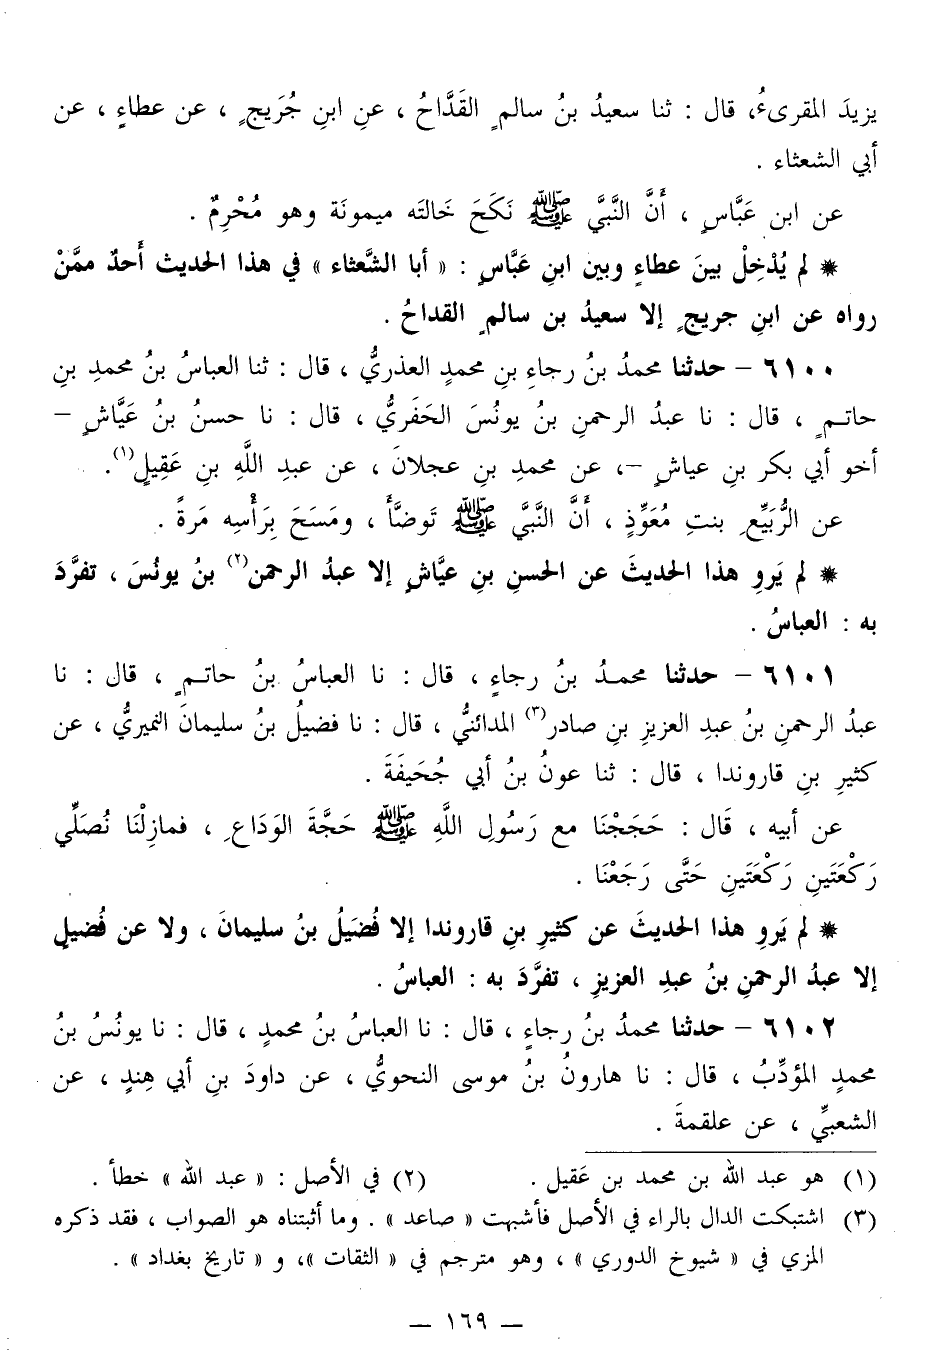 يزيدَ المقرىءُ، قال : ثنا سعيدُ بنُ سالمٍ القَدَّاحُ ، عنِ ابنِ جُرَيجٍ ، عن عطاءٍ ، عن
أبي الشعثاء .
عن ابن عَبَّاسٍ ، أَنَّ النَّبيَّ ﷺ نَكَحَ خَالتَه ميمونَة وهو مُحْرِمٌ .
* لم يُدْخِلْ بينَ عطاءٍ وبين ابنِ عبَّاسٍ : « أبا الشَّعثاء » في هذا الحديث أَحدٌ ممَّنْ
رواه عن ابنِ جريجٍ إلا سعيدُ بن سالمٍ القداحُ .
٦١٠٠ – حدثنا محمدُ بنُ رجاءِ بنِ محمدٍ العذريُّ ، قال : ثنا العباسُ بنُ محمدِ بنِ
حاتمٍ ، قال : نا عبدُ الرحمنِ بنُ يونُسَ الحَفَريُّ ، قال : نا حسنُ بنُ عَيَّاشٍ –
أخو أبي بكر بنِ عياشٍ –، عن محمدِ بنِ عجلانَ ، عن عبدِ اللَّهِ بنِ عَقِيلٍ(١).
عن الرُّبَيِّعِ بنتِ مُعَوِّذٍ ، أَنَّ النَّبيَّ ﷺ تَوضَّأَ ، ومَسَحَ بِرَأْسِه مَرةً .
* لم يَروِ هذا الحديثَ عن الحسنِ بنِ عيَّاشٍ إلا عبدُ الرحمن(٢) بنُ يونُسَ ، تفرَّدَ
به : العباسُ .
٦١٠١ – حدثنا محمدُ بنُ رجاءٍ ، قال : نا العباسُ بنُ حاتمٍ ، قال : نا
عبدُ الرحمنِ بنُ عبدِ العزيزِ بنِ صادر(٣) المدائنيُّ ، قال : نا فضيلُ بنُ سليمانَ النميريُّ ، عن
كثيرِ بنِ قاروندا ، قال : ثنا عونُ بنُ أبي جُحَيفَةَ .
عن أبيه ، قَال : حَجَجْنَا مع رَسُولِ اللَّهِ ﷺ حَجَّةَ الوَدَاعِ ، فمازِلْنَا نُصَلِّي
رَكْعَتَينِ رَكْعَتَينِ حَتَّى رَجَعْنَا .
* لم يَروِ هذا الحديثَ عن كثيرِ بنِ قاروندا إلا فُضَيلُ بنُ سليمانَ ، ولا عن فُضيلٍ
إلا عبدُ الرحمنِ بنُ عبدِ العزيزِ ، تفرَّدَ به : العباسُ .
٦١٠٢ – حدثنا محمدُ بنُ رجاءٍ ، قال : نا العباسُ بنُ محمدٍ ، قال : نا يونُسُ بنُ
محمدٍ المؤدِّبُ ، قال : نا هارونُ بنُ موسى النحويُّ ، عن داودَ بنِ أبي هِندٍ ، عن
الشعبيِّ ، عن علقمةَ .
(١) هو عبد الله بن محمد بن عَقيل . (٢) في الأصل : « عبد الله » خطأ .
(٣) اشتبكت الدال بالراء في الأصل فأشبهت « صاعد » . وما أثبتناه هو الصواب ، فقد ذكره
المزي في « شيوخ الدوري » ، وهو مترجم في « الثقات »، و « تاريخ بغداد » .
– ١٦٩ –